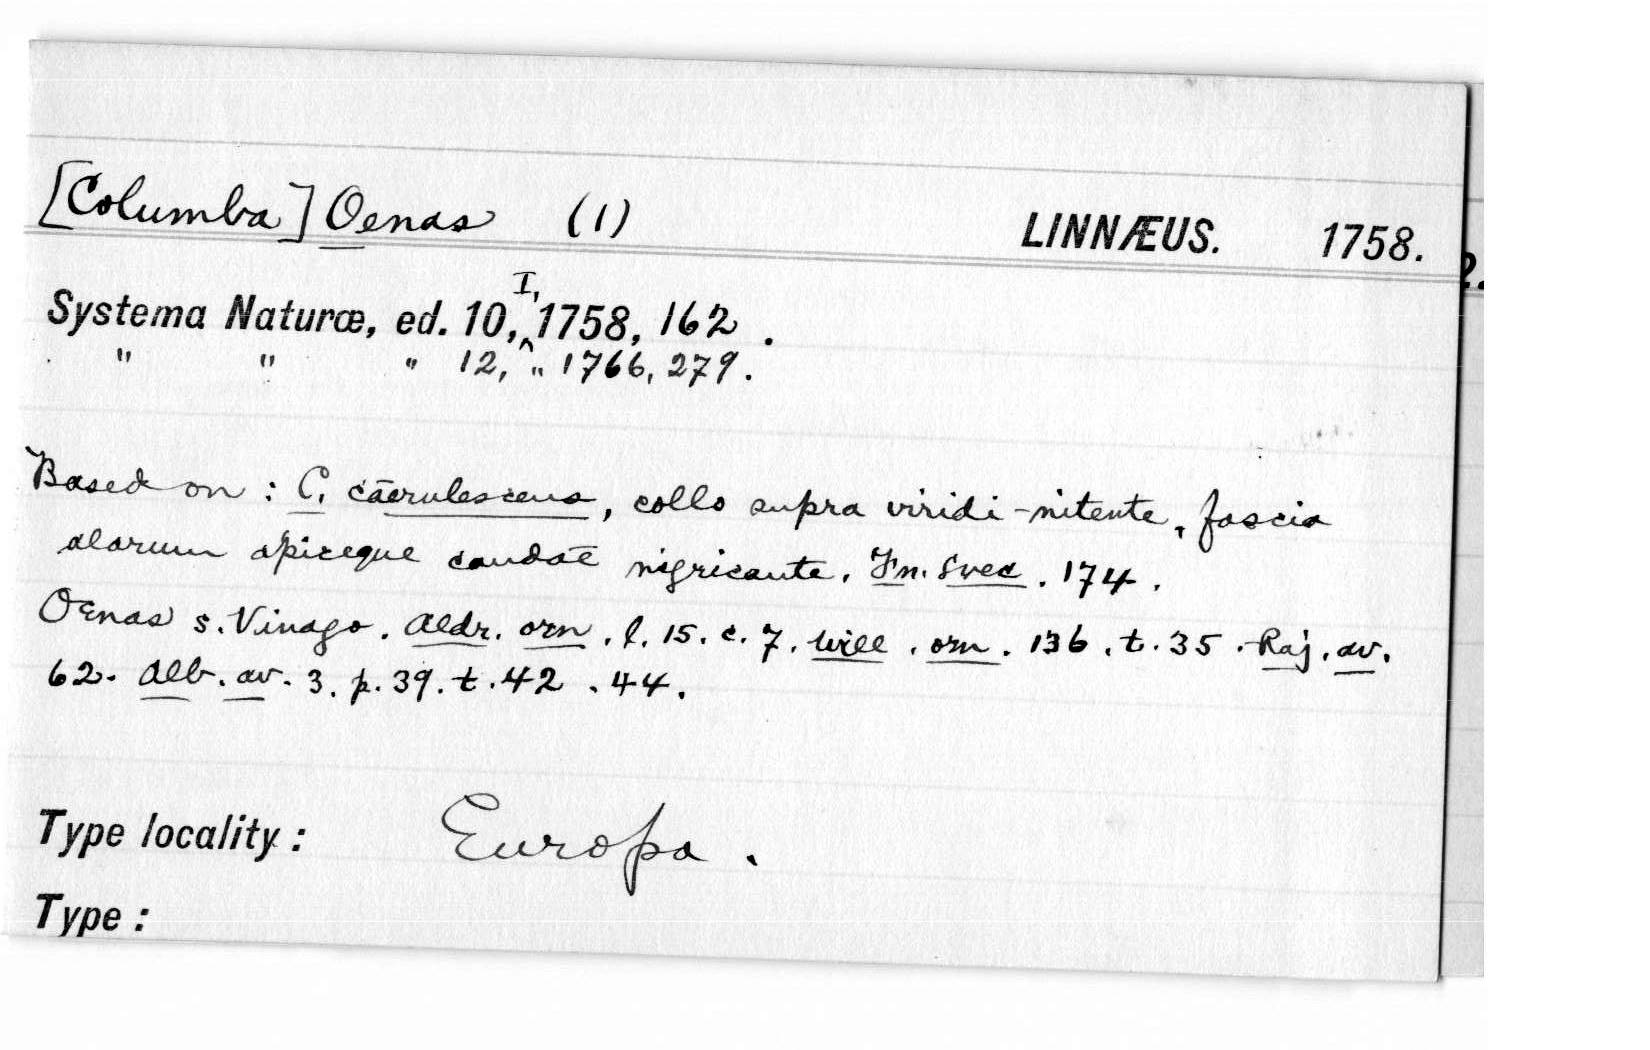 [Columba] Oenas (1) LINNÆUS. 1758.
I,
Systema Naturæ, ed. 10,^1758, 162.
" " " 12, " 1766, 279.
Based on : C. cærulescens, collo supra viridi-nitente, fascia
alarum apiceque caudæ nigricante. Fn. Svec. 174.
Oenas s. Vinago. Aldr. orn. l. 15. c. 7. Will. orn. 136. t. 35. Raj. av.
62. Alb. av. 3. p. 39. t. 42. 44.
Type locality: Europa.
Type:
2.